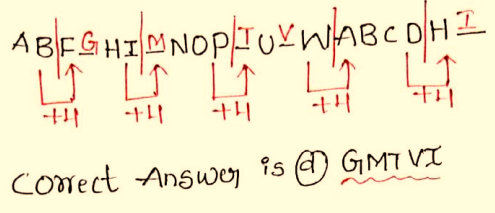 ABFGHIMNOPTUVWABCDHI
+4 +4 +4 +4 +4
Correct Answer is ⓓ GMTVI